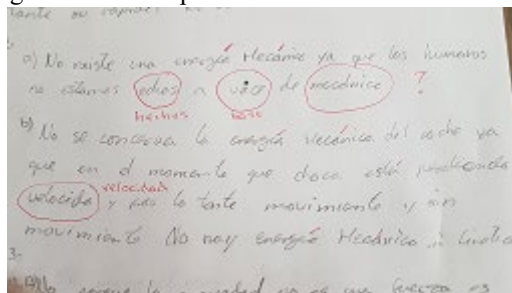 tante su rápidez
a) No existe una energía Mecánica ya que los humanos
no estamos echos a vace de mecánica ?
hechos base
b) No se conserva la energía Mecánica del coche ya
que en el momento que choca está perdiendo
velocida y por lo tante movimiento y sin
velocidad
movimiento No hay energía Mecánica ni Cinética
3-